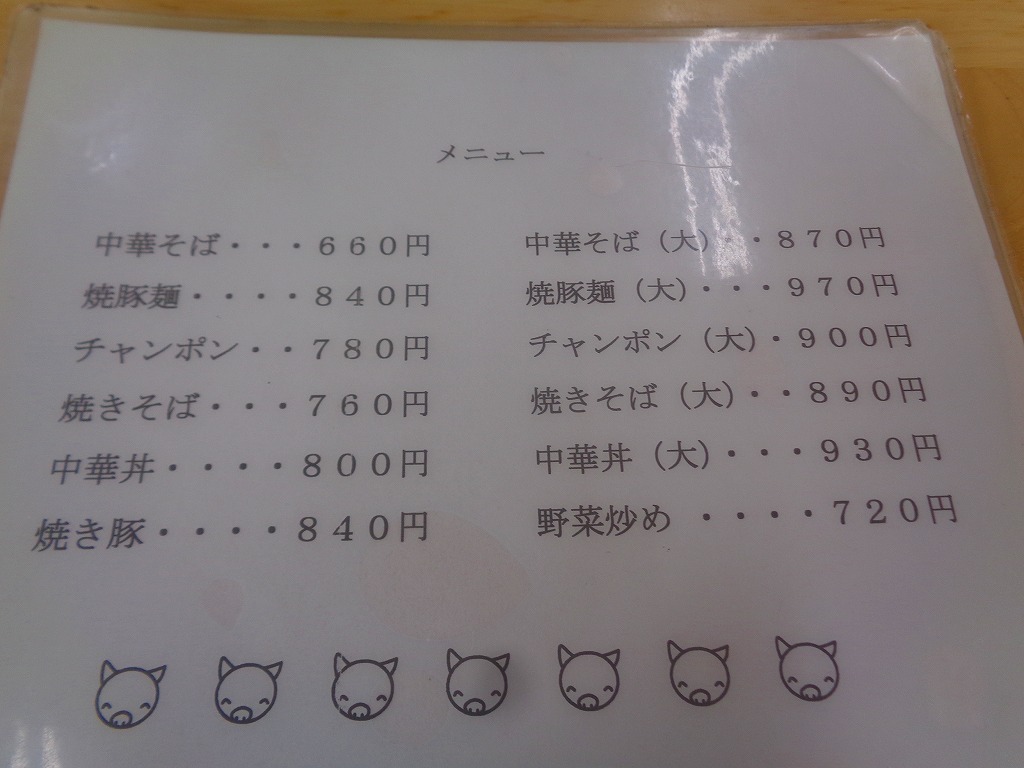 メニュー
中華そば・・・６６０円
焼豚麺・・・・８４０円
チャンポン・・７８０円
焼きそば・・・７６０円
中華丼・・・・８００円
焼き豚・・・・８４０円
中華そば（大）・・８７０円
焼豚麺（大）・・・９７０円
チャンポン（大）・９００円
焼きそば（大）・・８９０円
中華丼（大）・・・９３０円
野菜炒め ・・・・７２０円